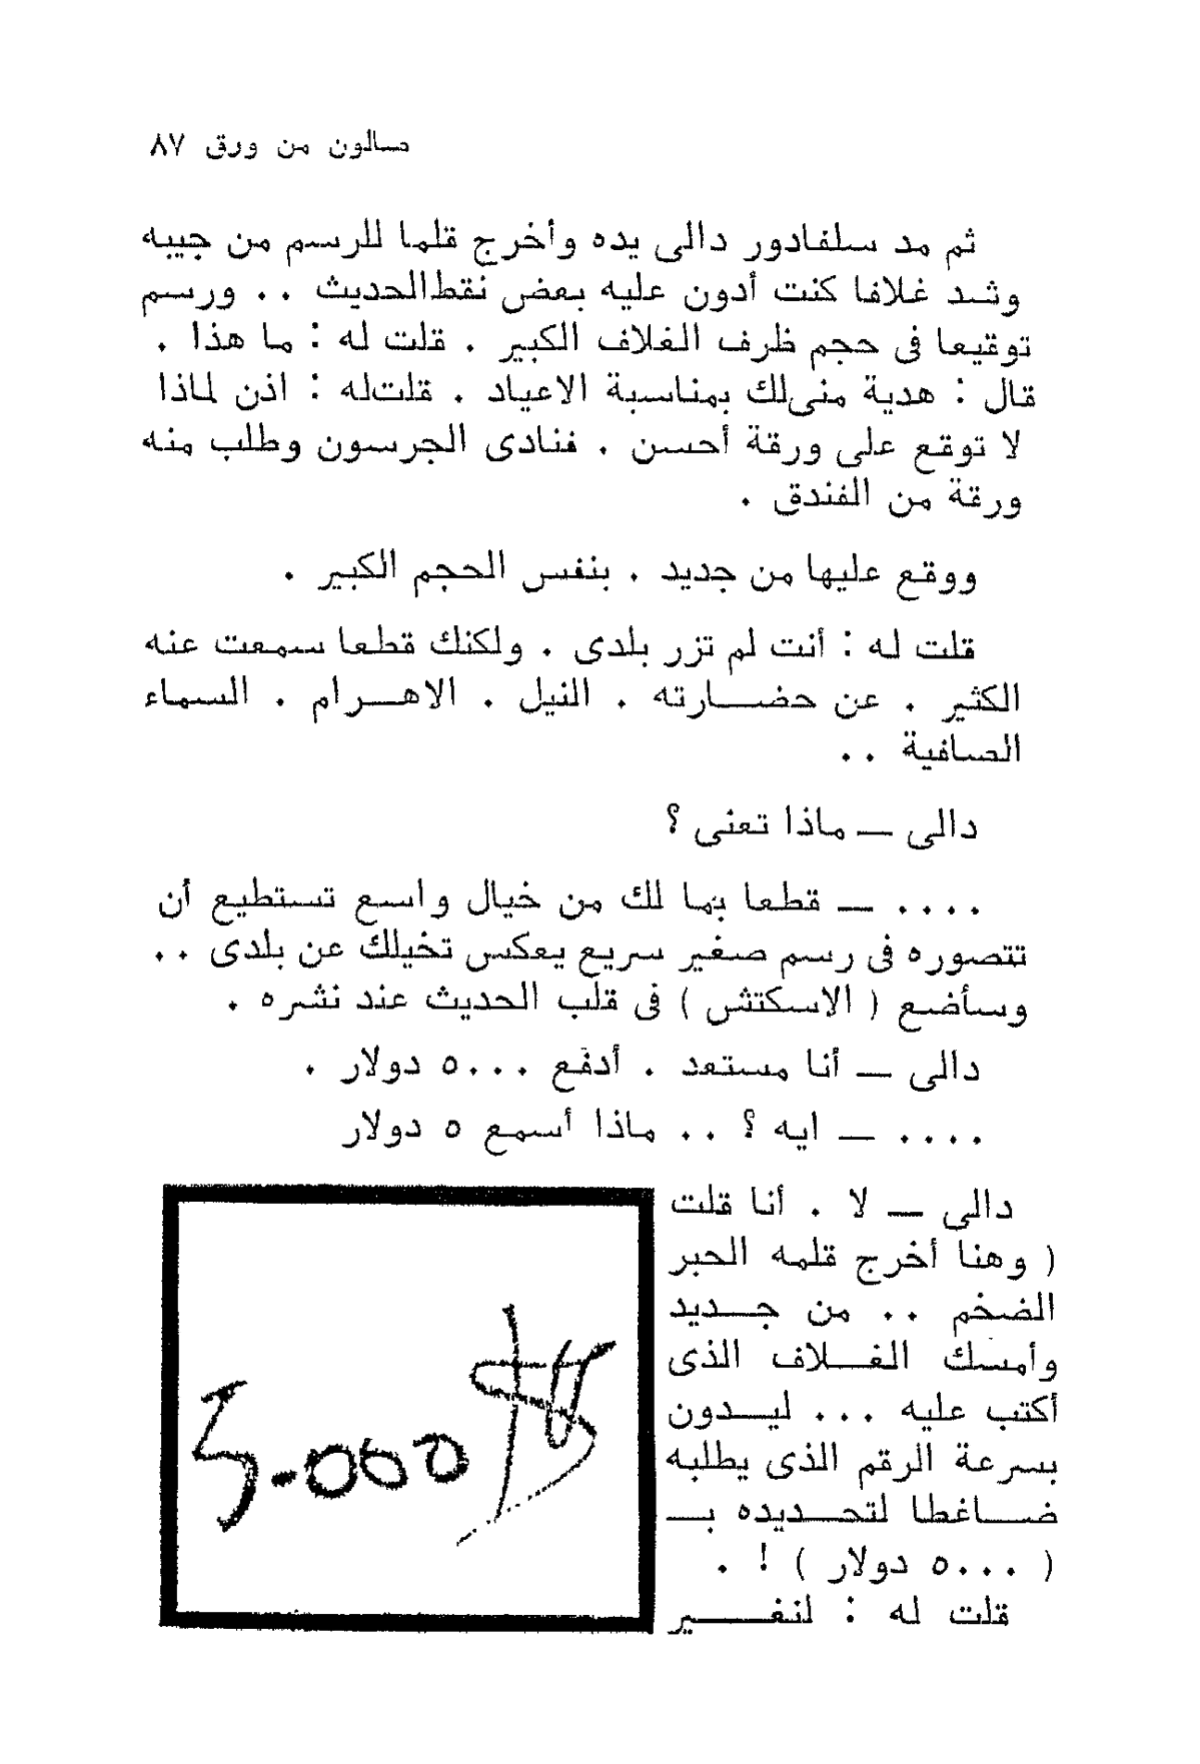 صالون من ورق ٨٧
ثم مد سلفادور دالى يده وأخرج قلما للرسم من جيبه
وشد غلافا كنت أدون عليه بعض نقط الحديث . . ورسم
توقيعا فى حجم ظرف الغلاف الكبير . قلت له : ما هذا .
قال : هدية منى لك بمناسبة الاعياد . قلت له : اذن لماذا
لا توقع على ورقة أحسن . فنادى الجرسون وطلب منه
ورقة من الفندق .
ووقع عليها من جديد . بنفس الحجم الكبير .
قلت له : أنت لم تزر بلدى . ولكنك قطعا سمعت عنه
الكثير . عن حضـــارته . النيل . الاهــرام . السماء
الصافية . .
دالى — ماذا تعنى ؟
. . . . — قطعا بما لك من خيال واسع تستطيع أن
تتصوره فى رسم صغير سريع يعكس تخيلك عن بلدى . .
وسأضع ( الاسكتش ) فى قلب الحديث عند نشره .
دالى — أنا مستعد . أدفع ٥٠٠٠ دولار .
. . . . — ايه ؟ . . ماذا أسمع ٥ دولار
دالى — لا . أنا قلت
( وهنا أخرج قلمه الحبر
الضخم . . من جــديد
وأمسك الغــلاف الذى
أكتب عليه ... ليــدون
بسرعة الرقم الذى يطلبه
ضــاغطا لتحــديده بــ
( ٥٠٠٠ دولار ) ! .
قلت له : لنفــــير
5-000 $